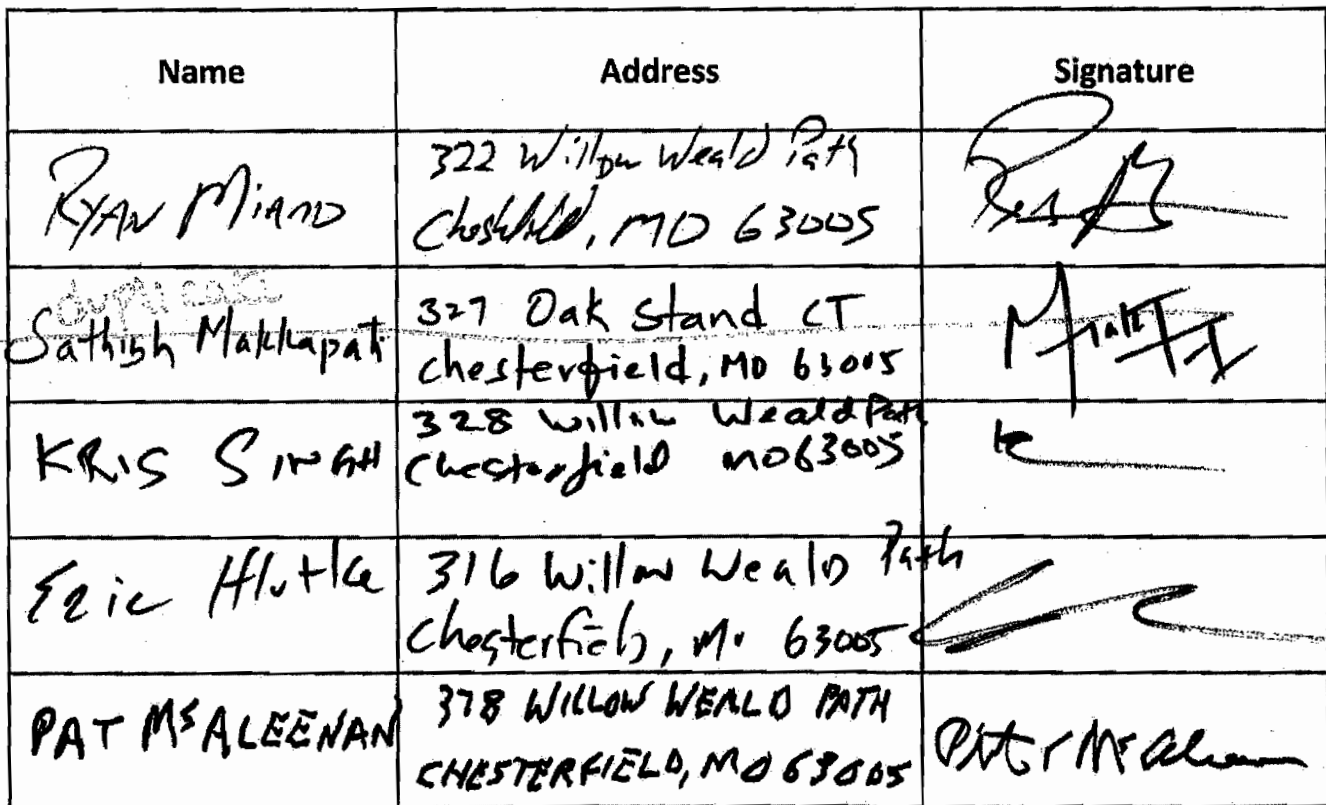 Name Address Signature
RYAN MIANO
322 Willow Weald Path
Chesterfield, MO 63005
duplicate
Sathish Makkapati
327 Oak Stand CT
chesterfield, MO 63005
KRIS SINGH
328 Willow Weald Path
Chesterfield MO 63005
Eric Hlutke
316 Willow Weald Path
Chesterfield, Mo 63005
PAT McALEENAN
378 WILLOW WEALD PATH
CHESTERFIELD, MO 63005